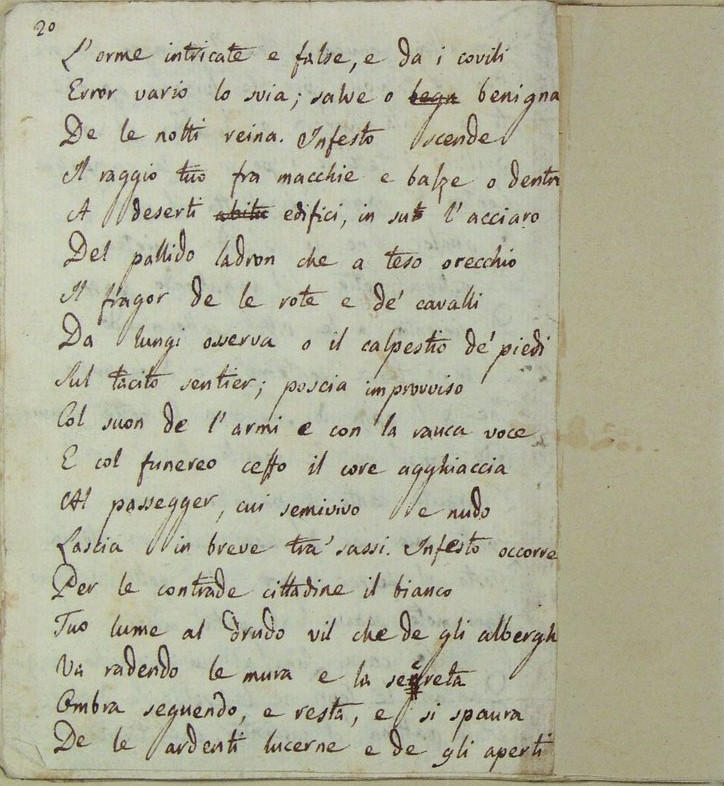 20
L'orme intricate e false, e da i covili
Error vario lo svia; salve o begn benigna
De le notti reina. Infesto scende
Il raggio tuo fra macchie e balze o dentro
A deserti abitu edifici, in sul l'acciaro
Del pallido ladron che a teso orecchio
Il fragor de le rote e de' cavalli
Da lungi osserva o il calpestio de' piedi
Sul tacito sentier; poscia improvviso
Col suon de l'armi e con la rauca voce
E col funereo ceffo il core agghiaccia
Al passegger, cui semivivo e nudo
Lascia in breve tra' sassi. Infesto occorre
Per le contrade cittadine il bianco
Tuo lume al drudo vil che de gli albergh
Va radendo le mura e la segreta
Ombra seguendo, e resta, e si spaura
De le ardenti lucerne e de gli aperti